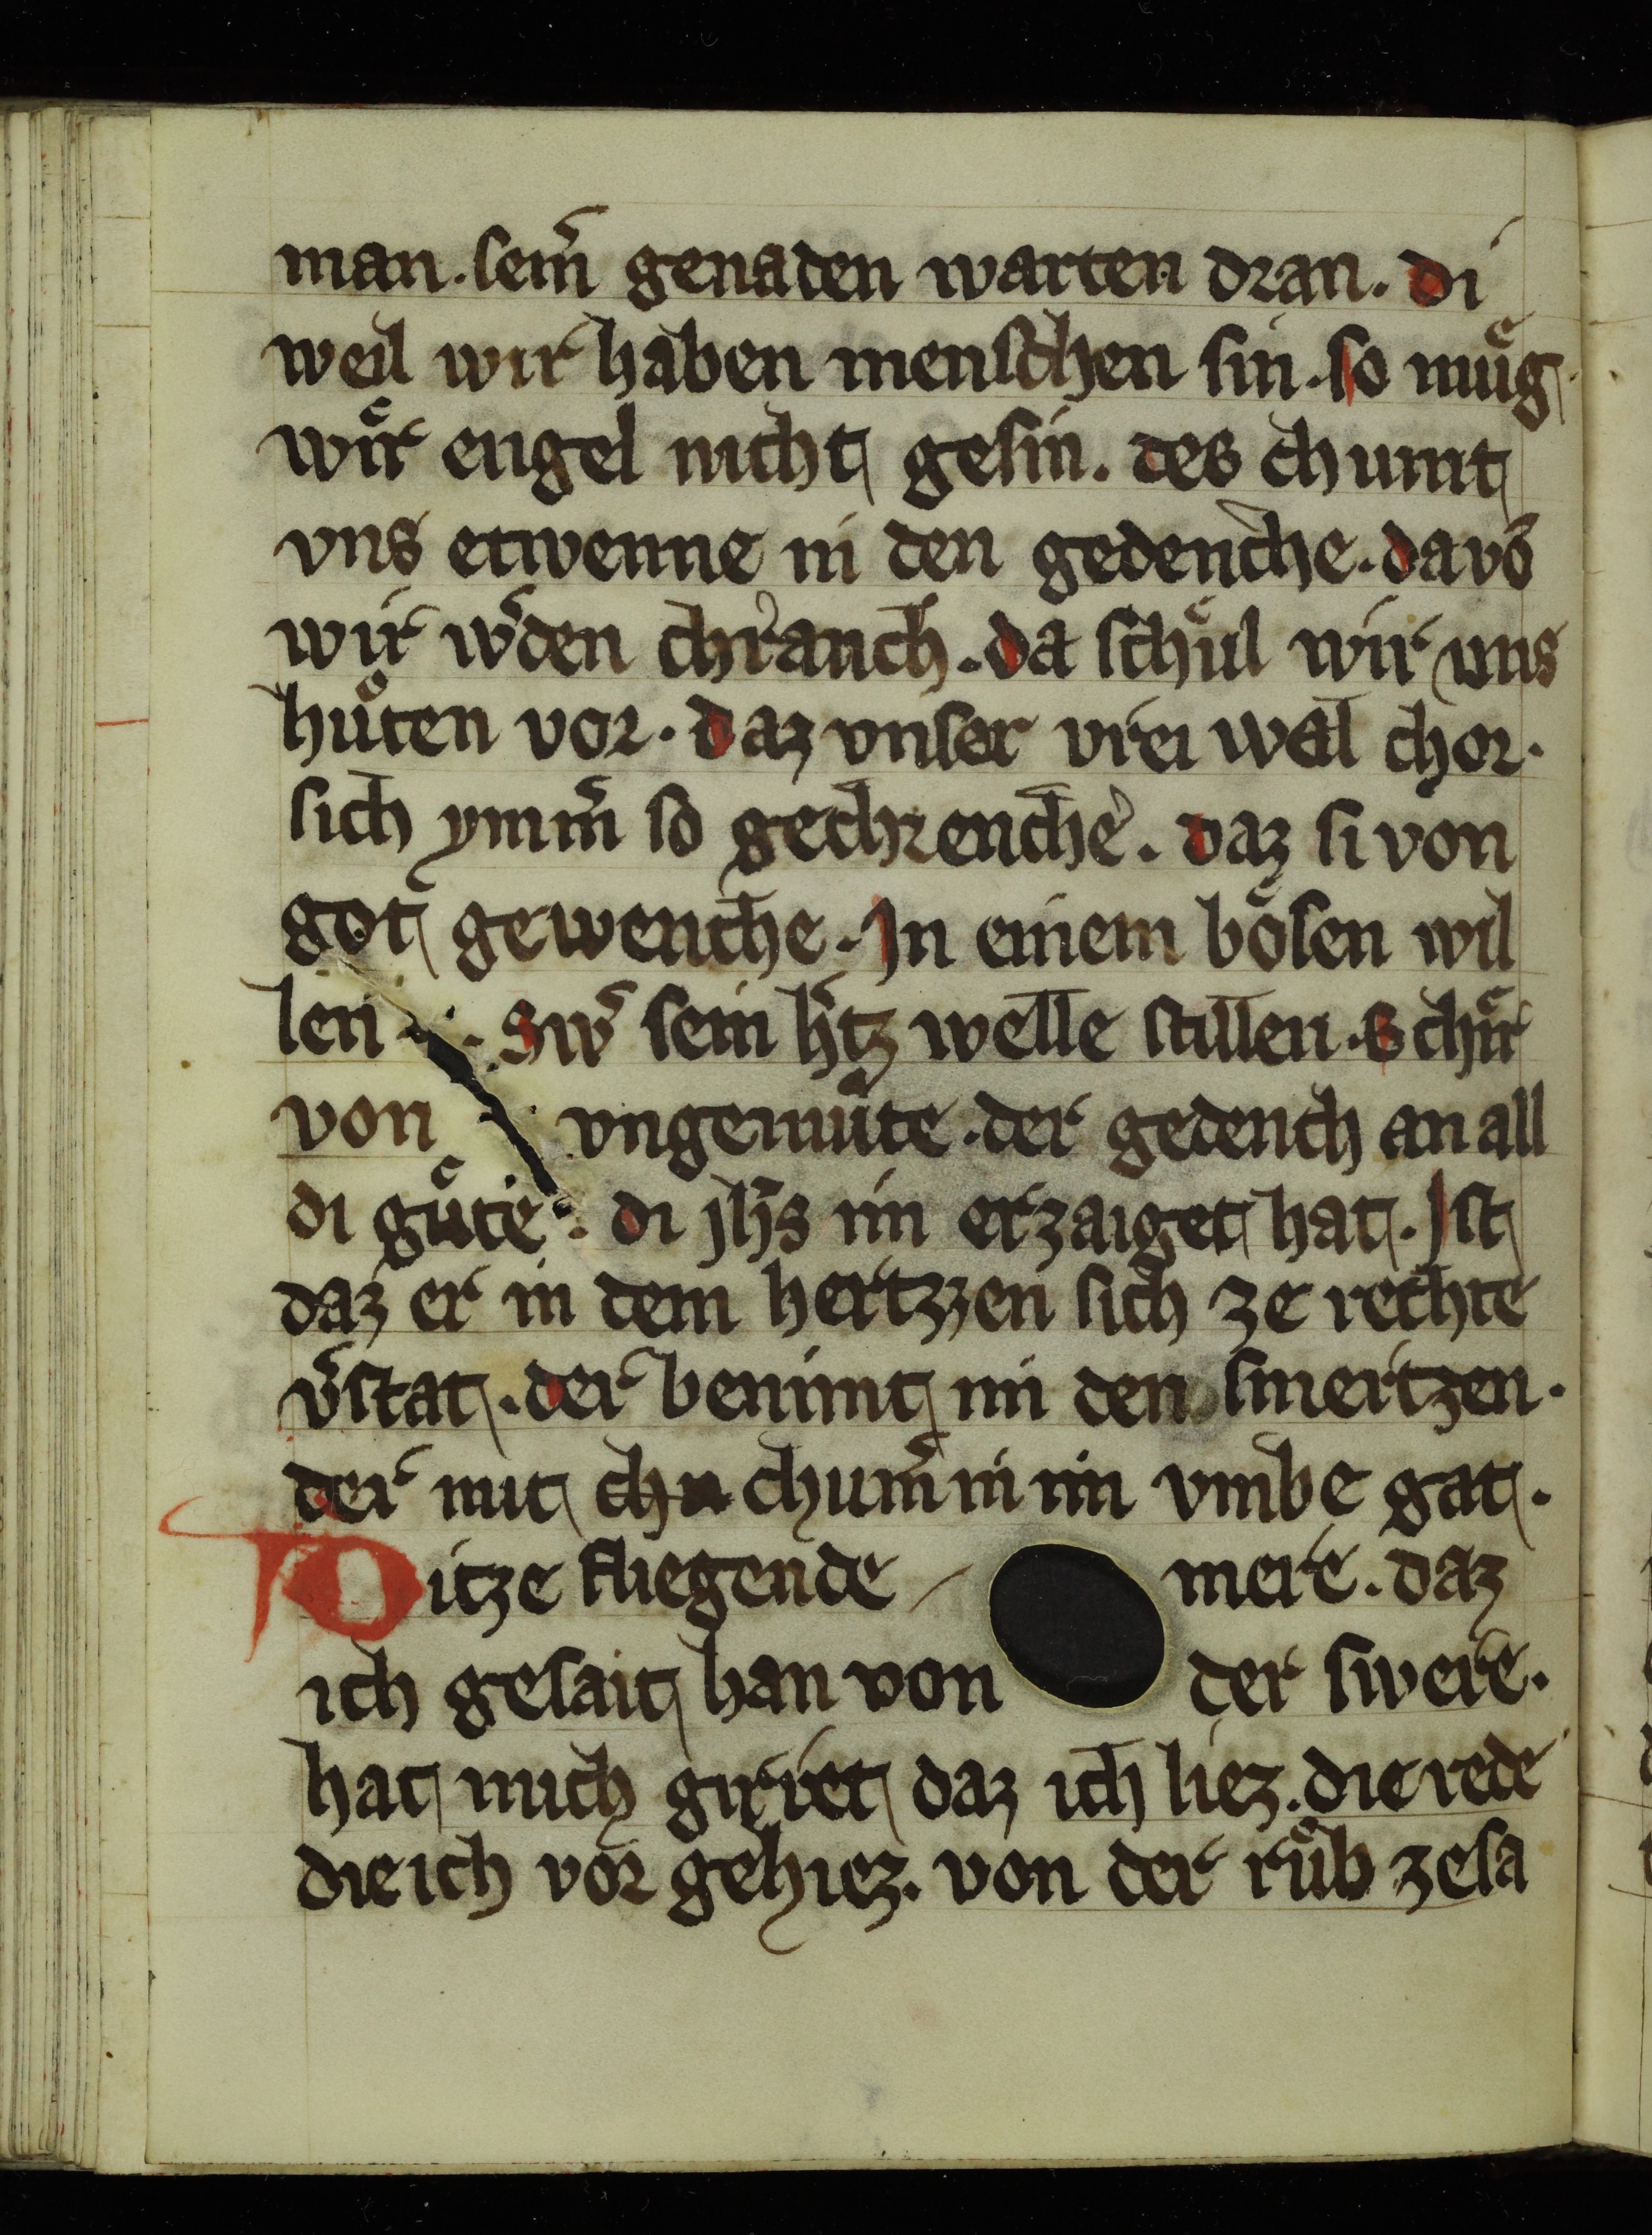 man. sem̄ genaden warten dran. di
weil wir haben menschen sin. so muͤg
wir engel nicht gesin. des chumt
vns etwenne in den gedenche. dauō
wir w̄den chranch. da schuͤl wir uns
huͤten vor. daz vnser vrei wal chor.
sich ymm̄ so gechrenche. daz si von
got gewenche. In einem boͤsen wil
len. Sw̄ sein h̄tz welle stillen. Schir
von vngemuͤte. der gedench an all
di guͤte. di jh̄s im erzaiget hat. Ist
daz er in dem hertzzen sich ze rechte
v̄stat. der benimt im den smertzen.
der mit chn chum̄ in im vmbe gat.
Ditze fliegende mere. daz
ich gesait han von der swere.
hat mich girret daz ich liez. die rede
die ich vor gehiez. von der ruͤb ze sa